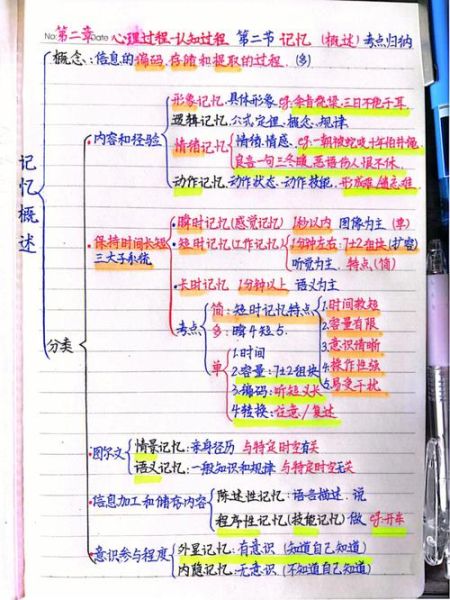 No:
Date
第二章 心理过程-认知过程 第二节 记忆 (概述) 考点归纳
记忆概述
概念:信息的编码,存储和提取的过程.(多)
分类
内容和经验
形象记忆.具体形象 eg:余音绕梁,三日不绝于耳.
逻辑记忆.公式定理.概念.规律
情绪记忆 情绪.情感. eg:一朝被蛇咬十年怕井绳.
良言一句三冬暖,恶语伤人恨不休.
动作记忆.动作状态.动作技能.形成难,遗忘难.
保持时间长短
三大子系统
瞬时记忆(感觉记忆) 1秒以内 图像为主 (单)
短时记忆(工作记忆) 1分钟左右:7±2组块(扩容)
听觉为主.特点(简)
长时记忆 1分钟以上 语义为主
考点
简:短时记忆特点
1.时间较短
2.容量有限
3.意识清晰
4.操作性强
5.易受干扰
多:瞬短长
单
1.时间
2.容量:7±2组块
3.编码:听短义长
4.转换:注意/复述
图尔文
情景记忆:亲身经历 与特定时空有关
语义记忆:一般知识和规律 与特定时空无关
信息加工和储存内容
陈述性记忆:语言描述.说
程序性记忆(技能记忆) 做 eg:开车
意识参与程度
外显记忆:有意识 (知道自己知道)
内隐记忆:无意识 (不知道自己知道)